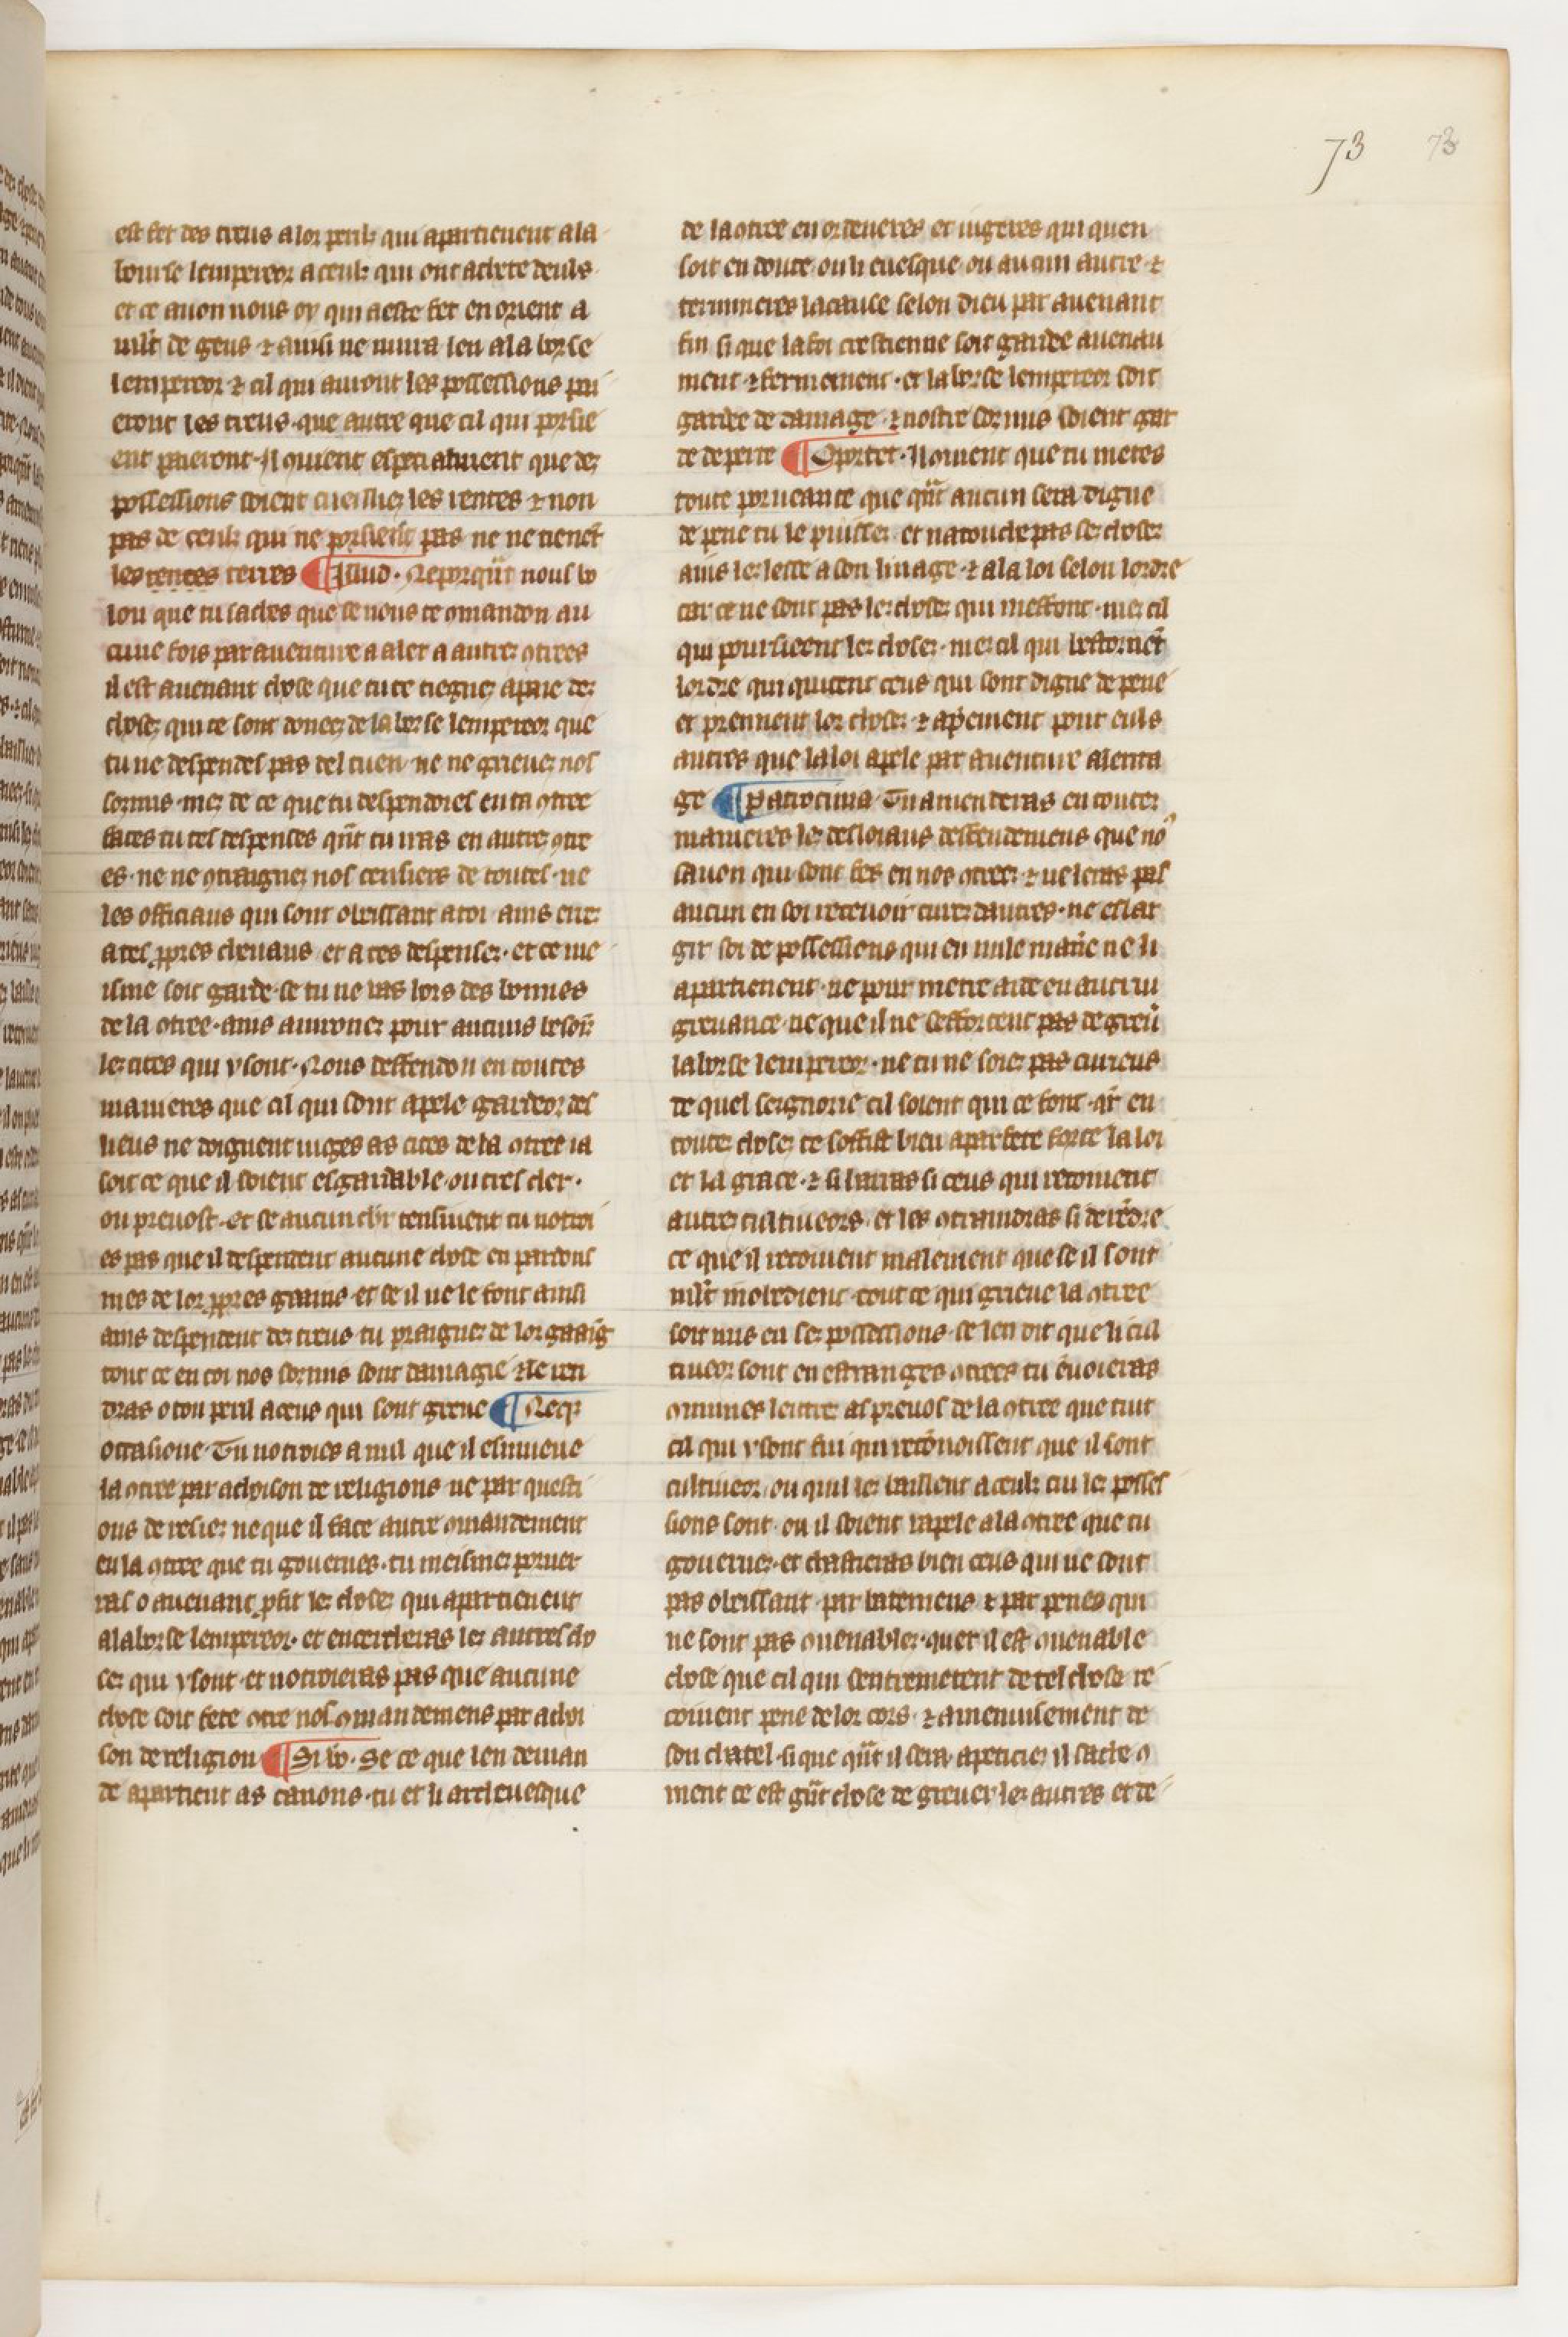 73 73
est fet des treus a lor perilz qui apartienent a la
bourse lempereor a ceulz qui ont achete deuls
et ce auon nous oy qui a este fet en orient a
mlt de gens ⁊ ausi ne nuira len a la borse
lempereor ⁊ cil qui auront les possessions pai
eront les treus que autre que cil qui porsie
ent paieront Il ꝯuient especiaument que dez
possessions soient cueilliez les rentes ⁊ non
pas de ceulz qui ne porsieēt pas ne ne tienēt
les rentes terres ¶ Illud. Neporqūt nous vo
lon que tu saches que se nous te ꝯmandon au
cune fois par auenture a aler a autrez ꝯtrees
il est auenant chose que tu te tiegnez apaie dez
chosez qui te sont doneez de la borse lempereor que
tu ne despendes pas del tuen ne ne grieuez nos
sozmis mez de ce que tu despendoies en ta ꝯtree
faces tu tes despenses qūt tu iras en autrez ꝯtre
es ne ne ꝯtraignez nos censiers de toutes ne
les officiaus qui sont obeissant a toi ains
a tes ꝓpres cheuaus et a tes despensez et ce me
isme soit garde se tu ne vas lors des bonnes
de la ꝯtree ains auironez pour aucuns
lez citez qui y sont Nous deffendon en toutes
manieres que cil qui sont apele gardeor des
lieus ne doignent iuges as cites de la ꝯtree ia
soit ce que il soient esgardable ou tres cler
ou preuost et se aucun
es pas que il despendent aucune chose en pardons
mes de lor ꝓpres gaains et se il ne le font ainsi
ains despendent dez treus tu praignez de lor gaaīg
tout ce en coi nos sozmis sont damagie ⁊ le ren
dras o ton peril a ceus qui sont greue ¶ Neqz
occasione Tu notroies a nul que il esmueue
la ꝯtree par achoison de religions ne par questi
ons de ne que il face autre ꝯmandement
en la ꝯtree que tu gouernes tu meismez poruer
ras o auenant ꝓfit lez chosez qui apartienent
a la borse lempereor et encercheras lez autres cho
sez qui y sont et notroieras pas que aucune
chose soit fete ꝯtre nos ꝯmandemens par achoi
son de religion ¶ Si vo. Se ce que len deman
de apartient as canons tu et li archeuesque
de la ꝯtree en ordeneres et iugeres qui quen
soit en doute ou li euesque ou aucun autre ⁊
termineres la cause selon dieu par auenant
fin si que la foi crestienne soit gardee auenau
ment ⁊ fermement et la borse lempereor soit
gardee de damage ⁊ nostre sozmis soient gar
de de perte ¶ Oportet. Il ꝯuient que tu metes
toute porueance que qūt aucun sera digne
de pene tu le puisses et natouche pas sez chosez
ains lez lesse a son linage ⁊ a la loi selon lordre
car ce ne sont pas lez chosez qui meffont mez cil
qui poursieent lez chosez mez cil qui bestornēt
lordre qui quitent ceus qui sont digne de pene
et prennent lor chosez ⁊ apēment pour euls
autres que la loi apele par auenture a lerita
ge ¶ Patrocinia Tu amenderas en toutez
manieres lez desloiaus deffendemens que nō
sauon qui sont fes en nos ꝯtreez ⁊ ne leras pas
aucun en soi receuoir curez dautres ne eslar
gir soi de possessions qui en nule maīe ne li
apartienent ne pour metre aide en aucun
greuance ne que il ne sefforcent pas de greū
la borse lempereor ne tu ne soiez pas curieus
de quel seignorie cil soient qui ce font qr en
toutez chosez te soffist bien a parfete force la loi
et la grace ⁊ si batras si ceus qui recoiuent
autrez cultiueors et les ꝯtraindras si de rēdre
ce que il recoiuent malement que se il sont
mlt mobedient tout ce qui grieue la ꝯtree
soit mis en sez possessions se len dit que li cul
tiueor sont en estranges ꝯtrees tu ēuoieras
ꝯmunes lettres as preuos de la ꝯtree que tuit
cil qui y sont fui qui recōnoissent que il sont
cultiueor ou quil lez baillent a ceulz cui lez posses
sions sont ou il soient rapele a la ꝯtree que tu
gouernez et chastieras bien ceus qui ne sont
pas obeissant par batemens ⁊ par penes qui
ne sont pas ꝯuenablez quer il est ꝯuenable
chose que cil qui sentremetent de tel chose re
coiuent pene de lor cors ⁊ amenuisement de
son chatel si que qūt il sera apeticiez il sache ꝯ
ment ce est gūt chose de greuer lez autres et de